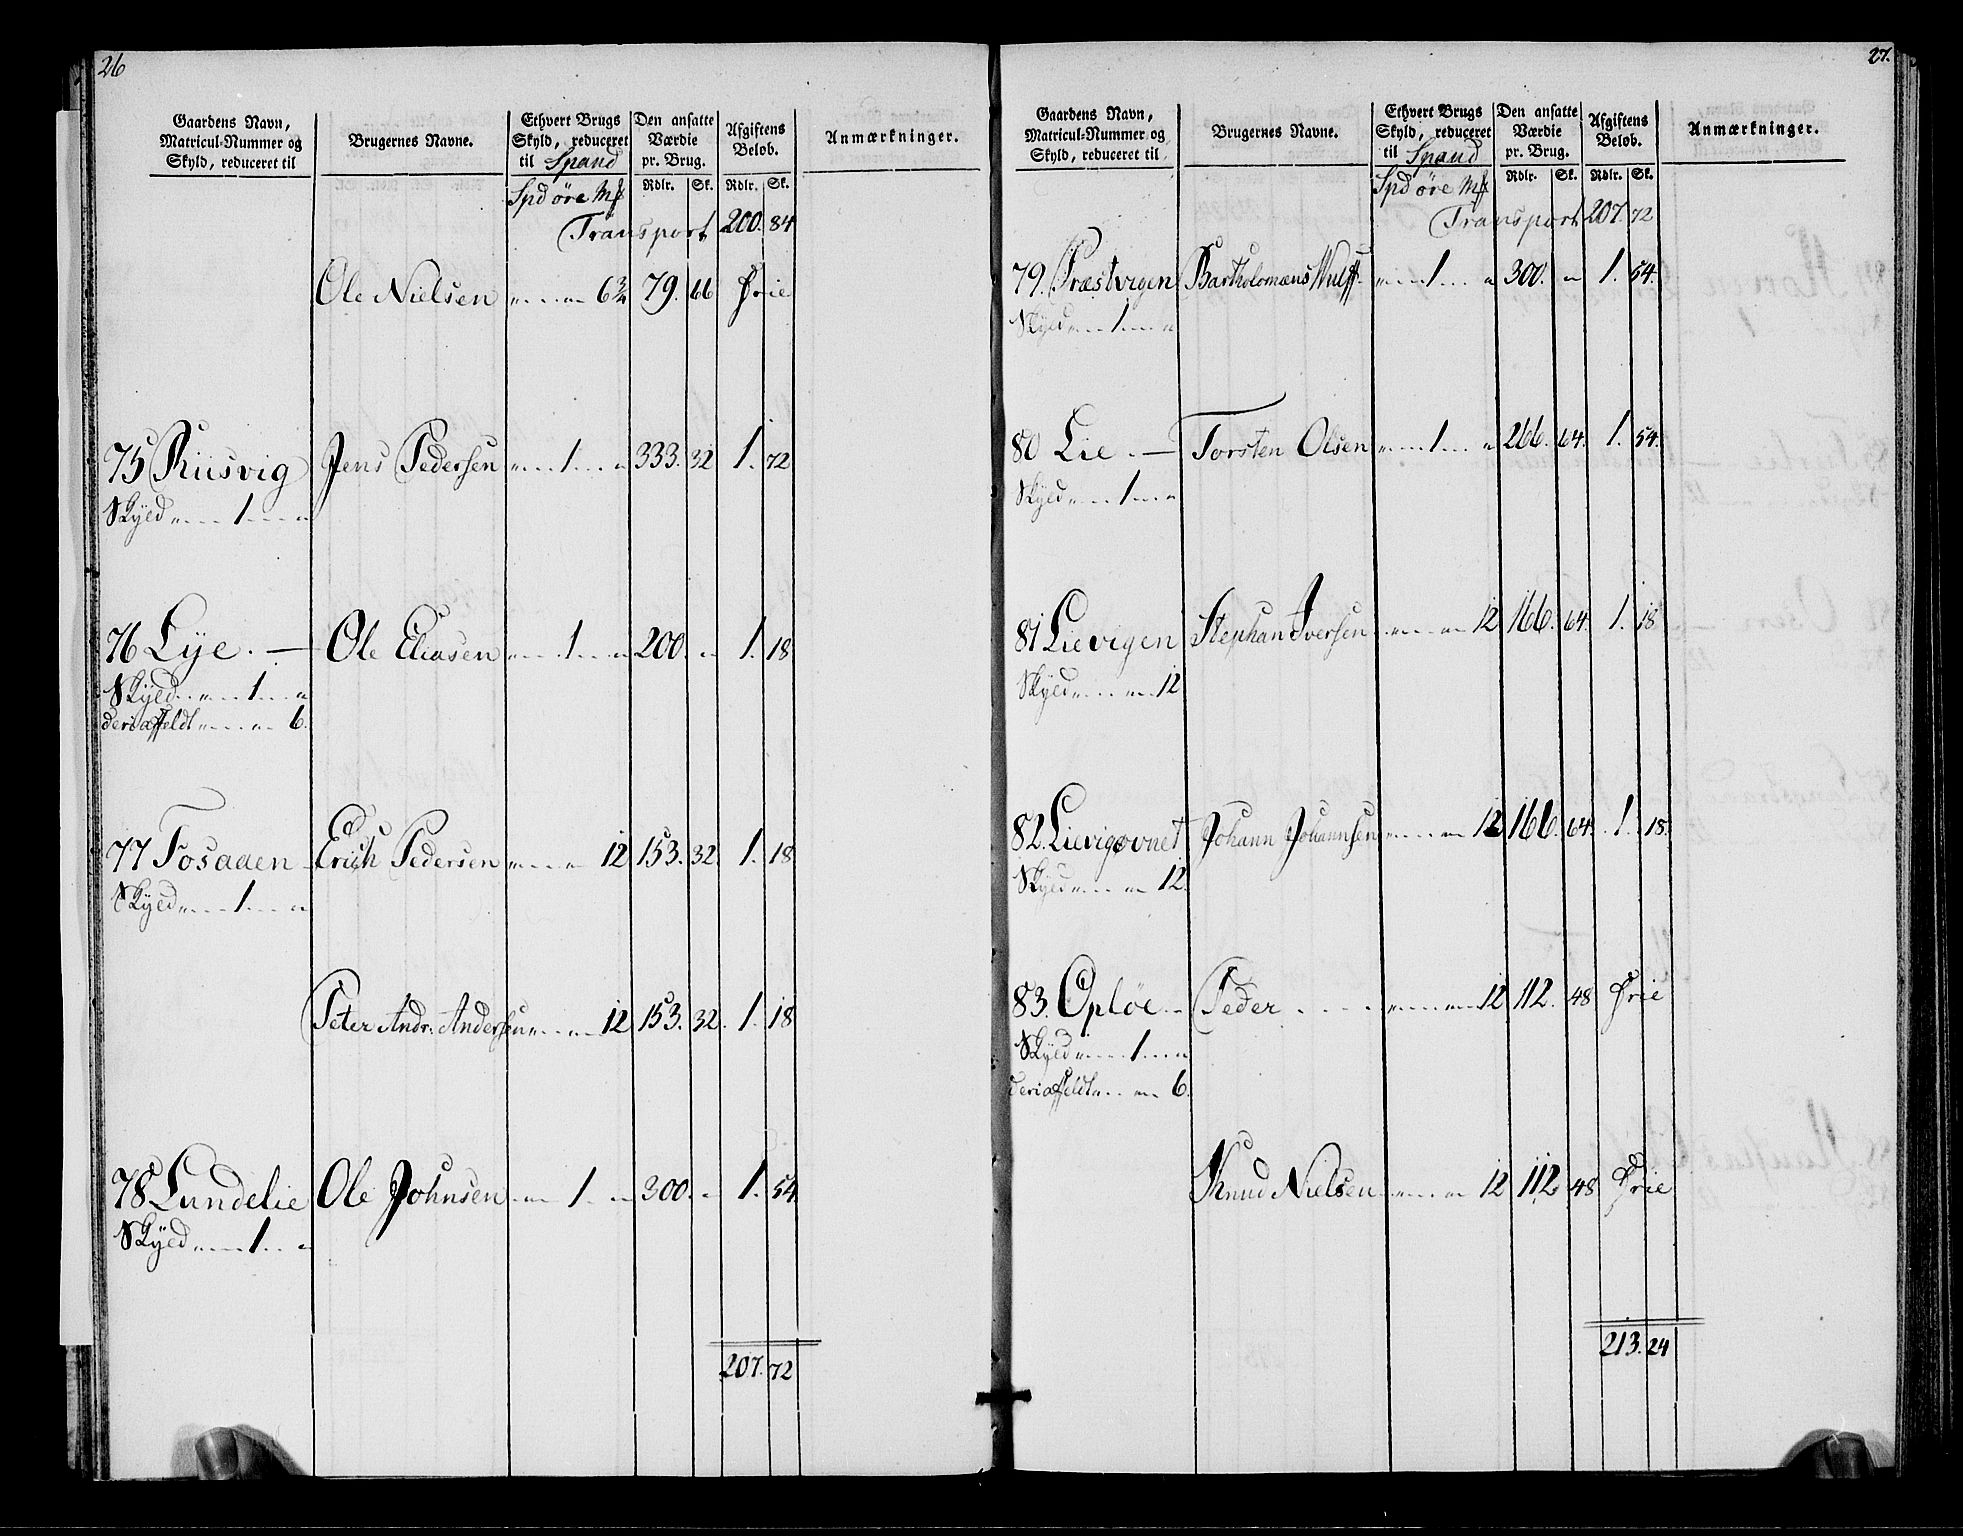 26
Gaardens Navn, Matricul-Nummer og Skyld, reduceret til | Brugernes Navne. | Ethvert Brugs Skyld, reduceret til Spand | Den ansatte Værdie pr. Brug. | Afgiftens Beløb. | Anmærkninger.
Spd øre Mk | Rdlr. | Sk. | Rdlr. | Sk.
Transport 200. 84
Ole Nielsen " " 6¾ 79. 66 Frie
75 Riisvig Jens Pedersen " 1 " 333. 32 1. 72
Skyld " 1 "
76 Lye. — Ole Eliasen " 1 " 200. " 1. 18
Skyld " 1 "
deriaffeldt " " 6.
77 Fosaaen Erich Pedersen " " 12 153. 32. 1. 18
Skyld " 1 "
Peter Andr: Andersen " " 12 153. 32. 1. 18
78 Lundelie Ole Johnsen " 1 " 300. " 1. 54
Skyld " 1 "
207. 72
27.
Gaardens Navn, Matricul-Nummer og Skyld, reduceret til | Brugernes Navne. | Ethvert Brugs Skyld, reduceret til Spand | Den ansatte Værdie pr. Brug. | Afgiftens Beløb. | Anmærkninger.
Spd øre Mk | Rdlr. | Sk. | Rdlr. | Sk.
Transport 207. 72
79. Præstvigen Bartholomæus Wulff " 1 " 300. " 1. 54.
Skyld " 1 "
80 Lie. — Torsten Olsen " 1 " 266. 64. 1. 54.
Skyld " 1 "
81 Lievigen Stephan Iversen " " 12 166. 64. 1. 18
Skyld " " 12
82. Lievigovnet Johann Johannsen " " 12 166. 64. 1. 18.
Skyld " " 12.
83. Opløe — Peder . . . . " " 12 112. 48 Frie
Skyld " 1 "
deriaffeldt " " 6.
Knud Nielsen " " 12 112 48 Frie
213. 24